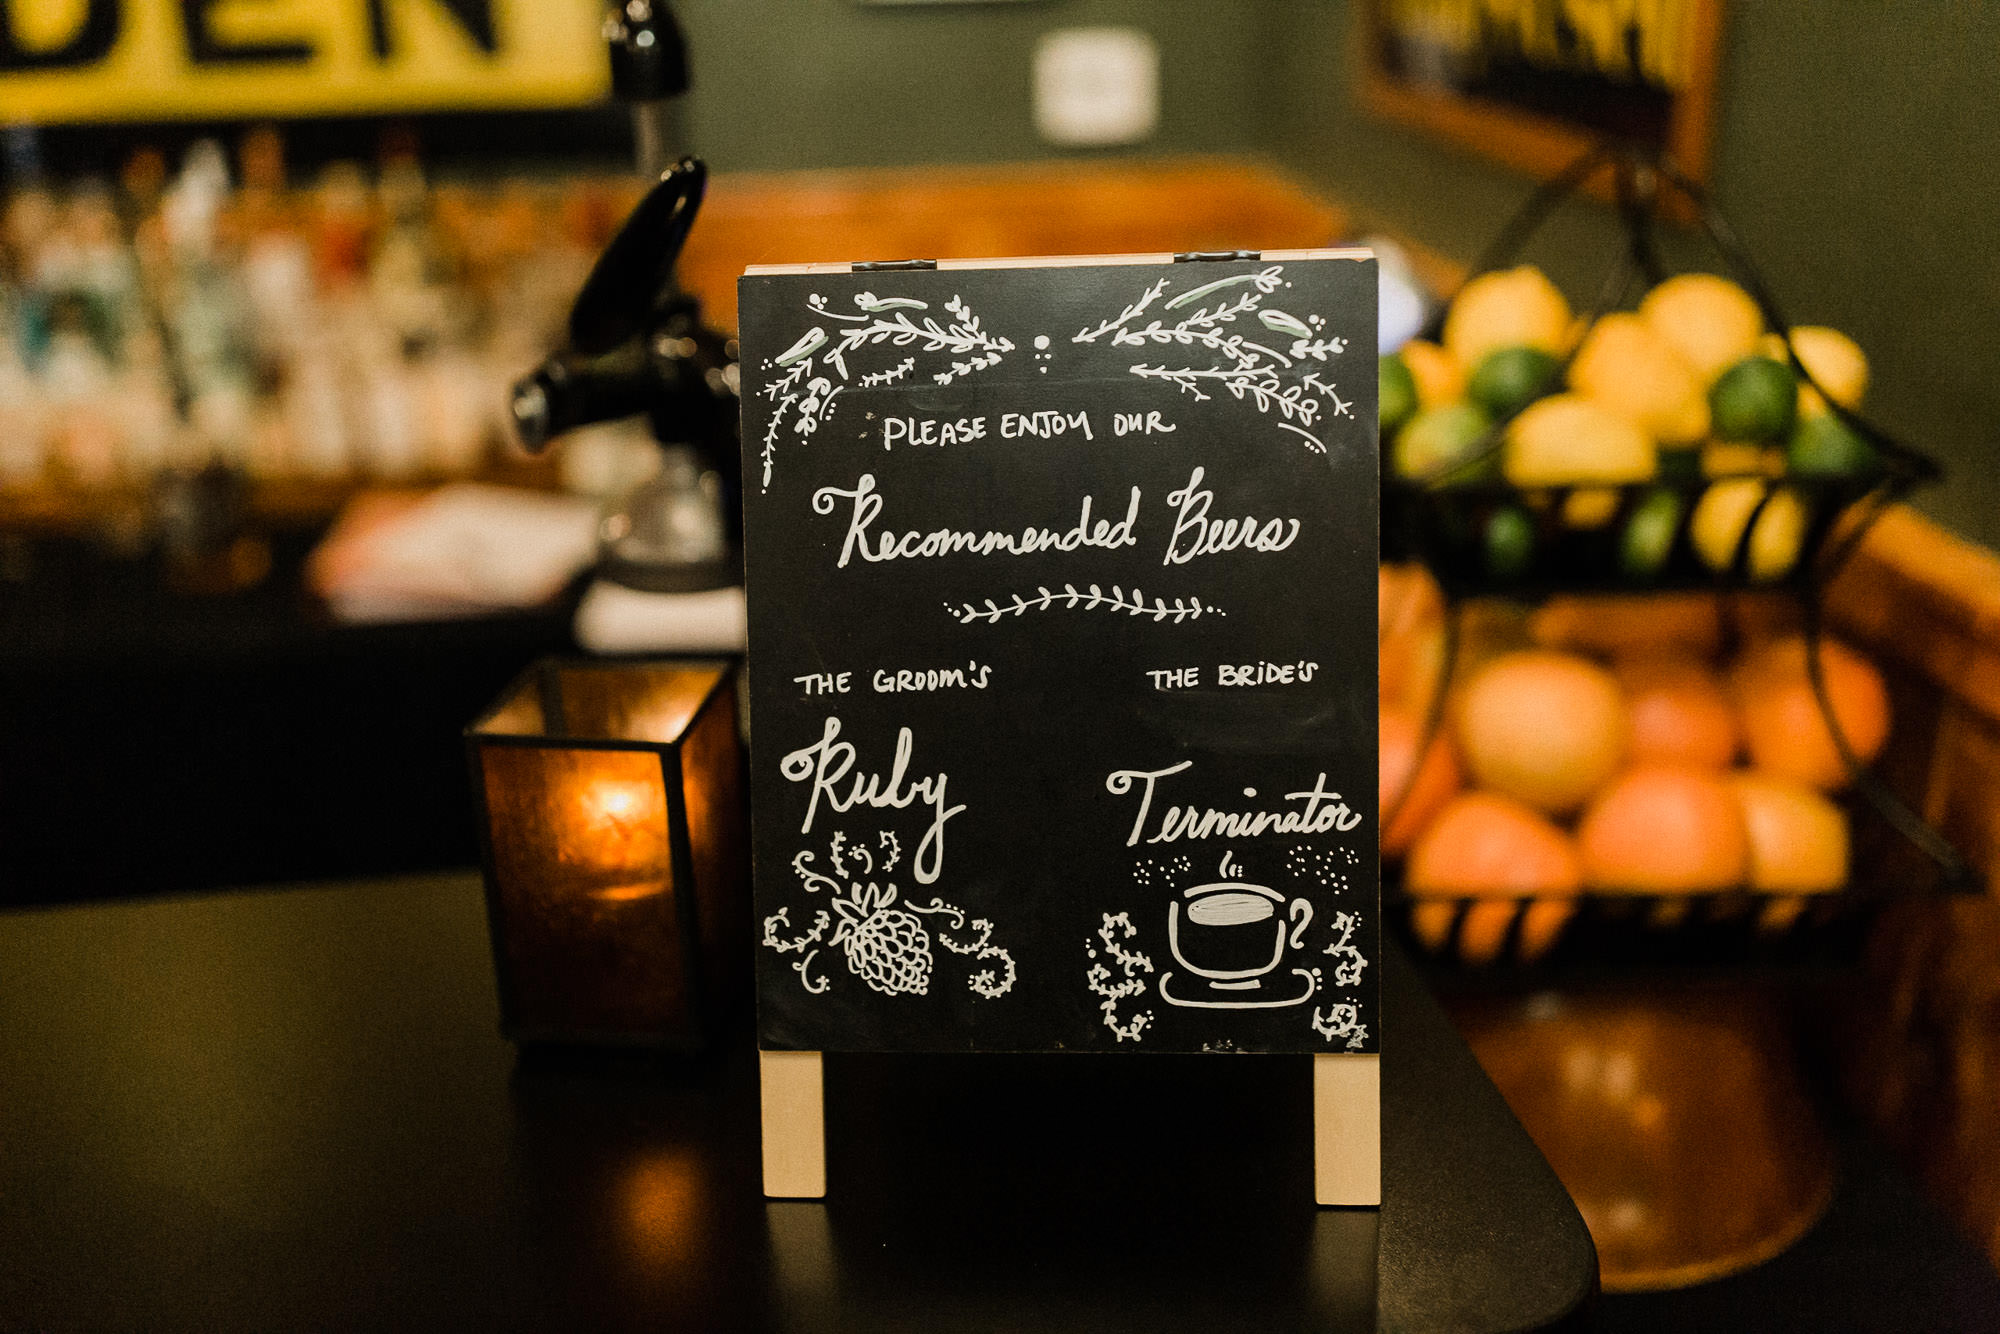 PLEASE ENJOY OUR
Recommended Beers
THE GROOM'S
THE BRIDE'S
Ruby
Terminator